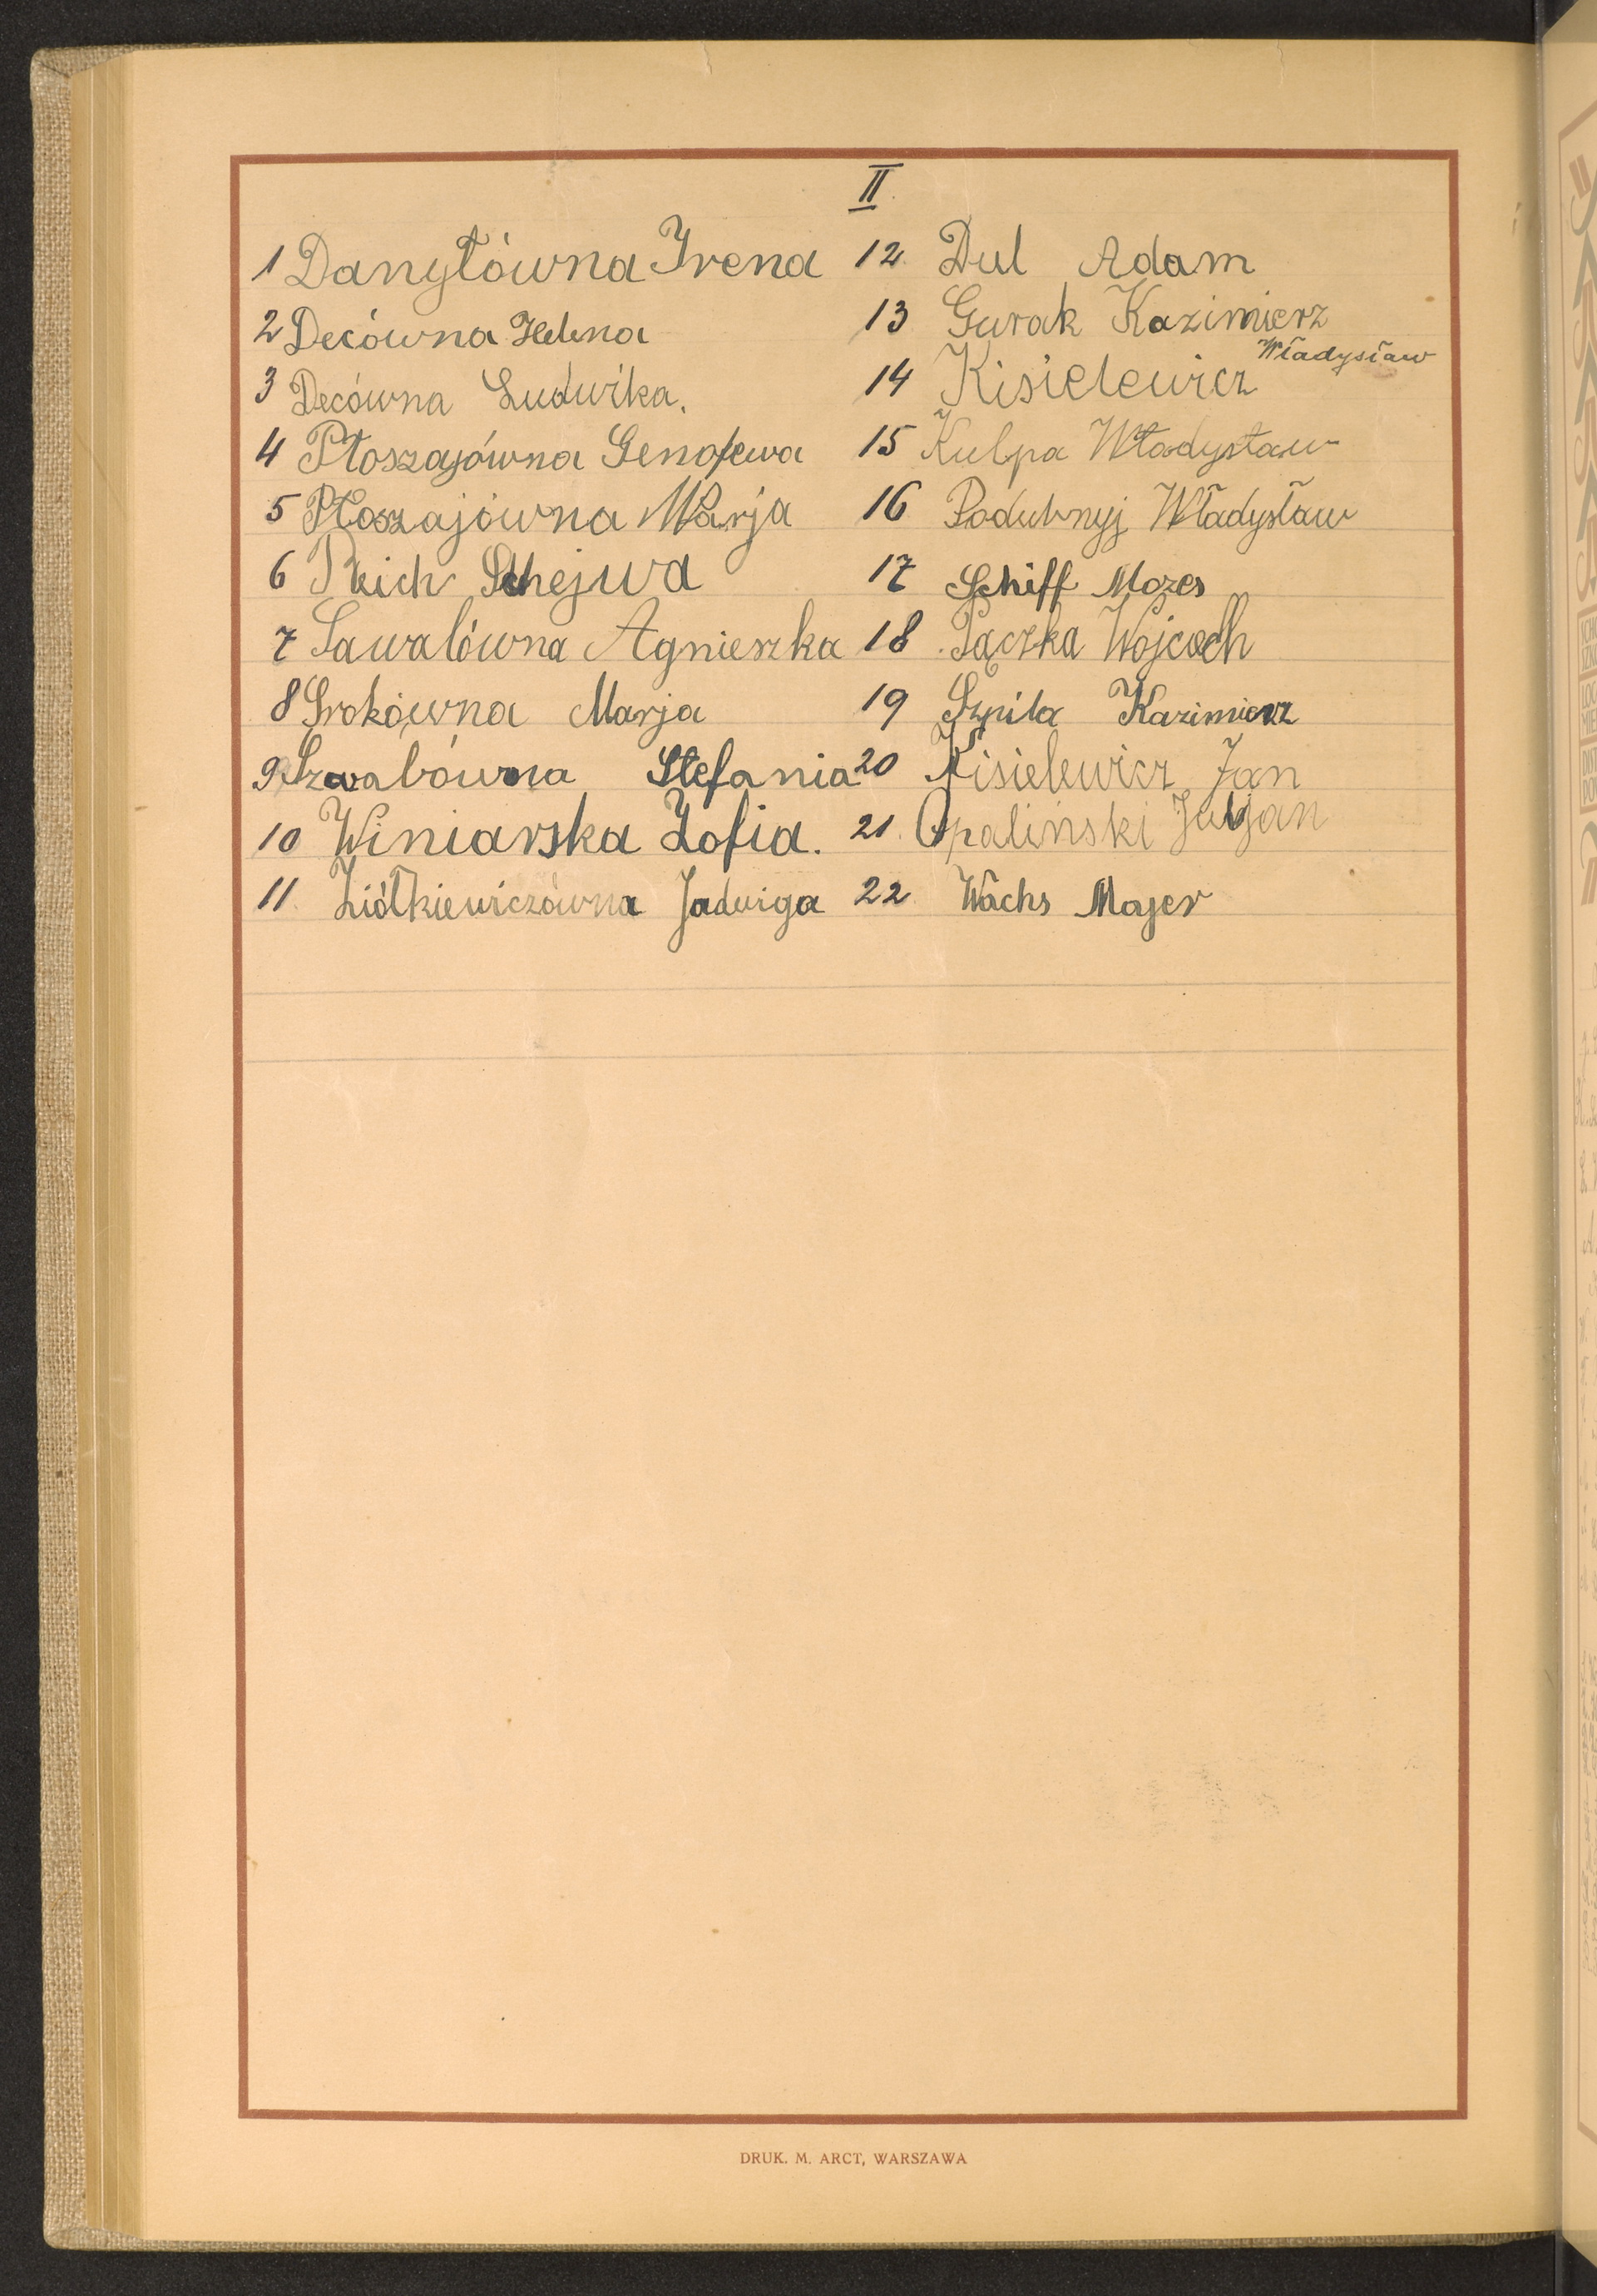 II
1 Danyłówna Irena
2 Decówna Helena
3 Decówna Ludwika.
4 Płoszajówna Genofewa
5 Płoszajówna Marja
6 Reich Schejwa
7 Sawalówna Agnieszka
8 Srokówna Marja
9 Szwabówna Stefania
10 Winiarska Zofia.
11. Ziółkiewiczówna Jadwiga
12. Dul Adam
13 Gurak Kazimierz
14 Kisielewicz Władysław
15 Kulpa Władysław
16 Podubnyj Władysław
17 Schiff Mozes
18 Pączka Wojcech
19 Szpila Kazimierz
20 Kisielewicz Jan
21. Opaliński Juljan
22 Wachs Majer
DRUK. M. ARCT, WARSZAWA